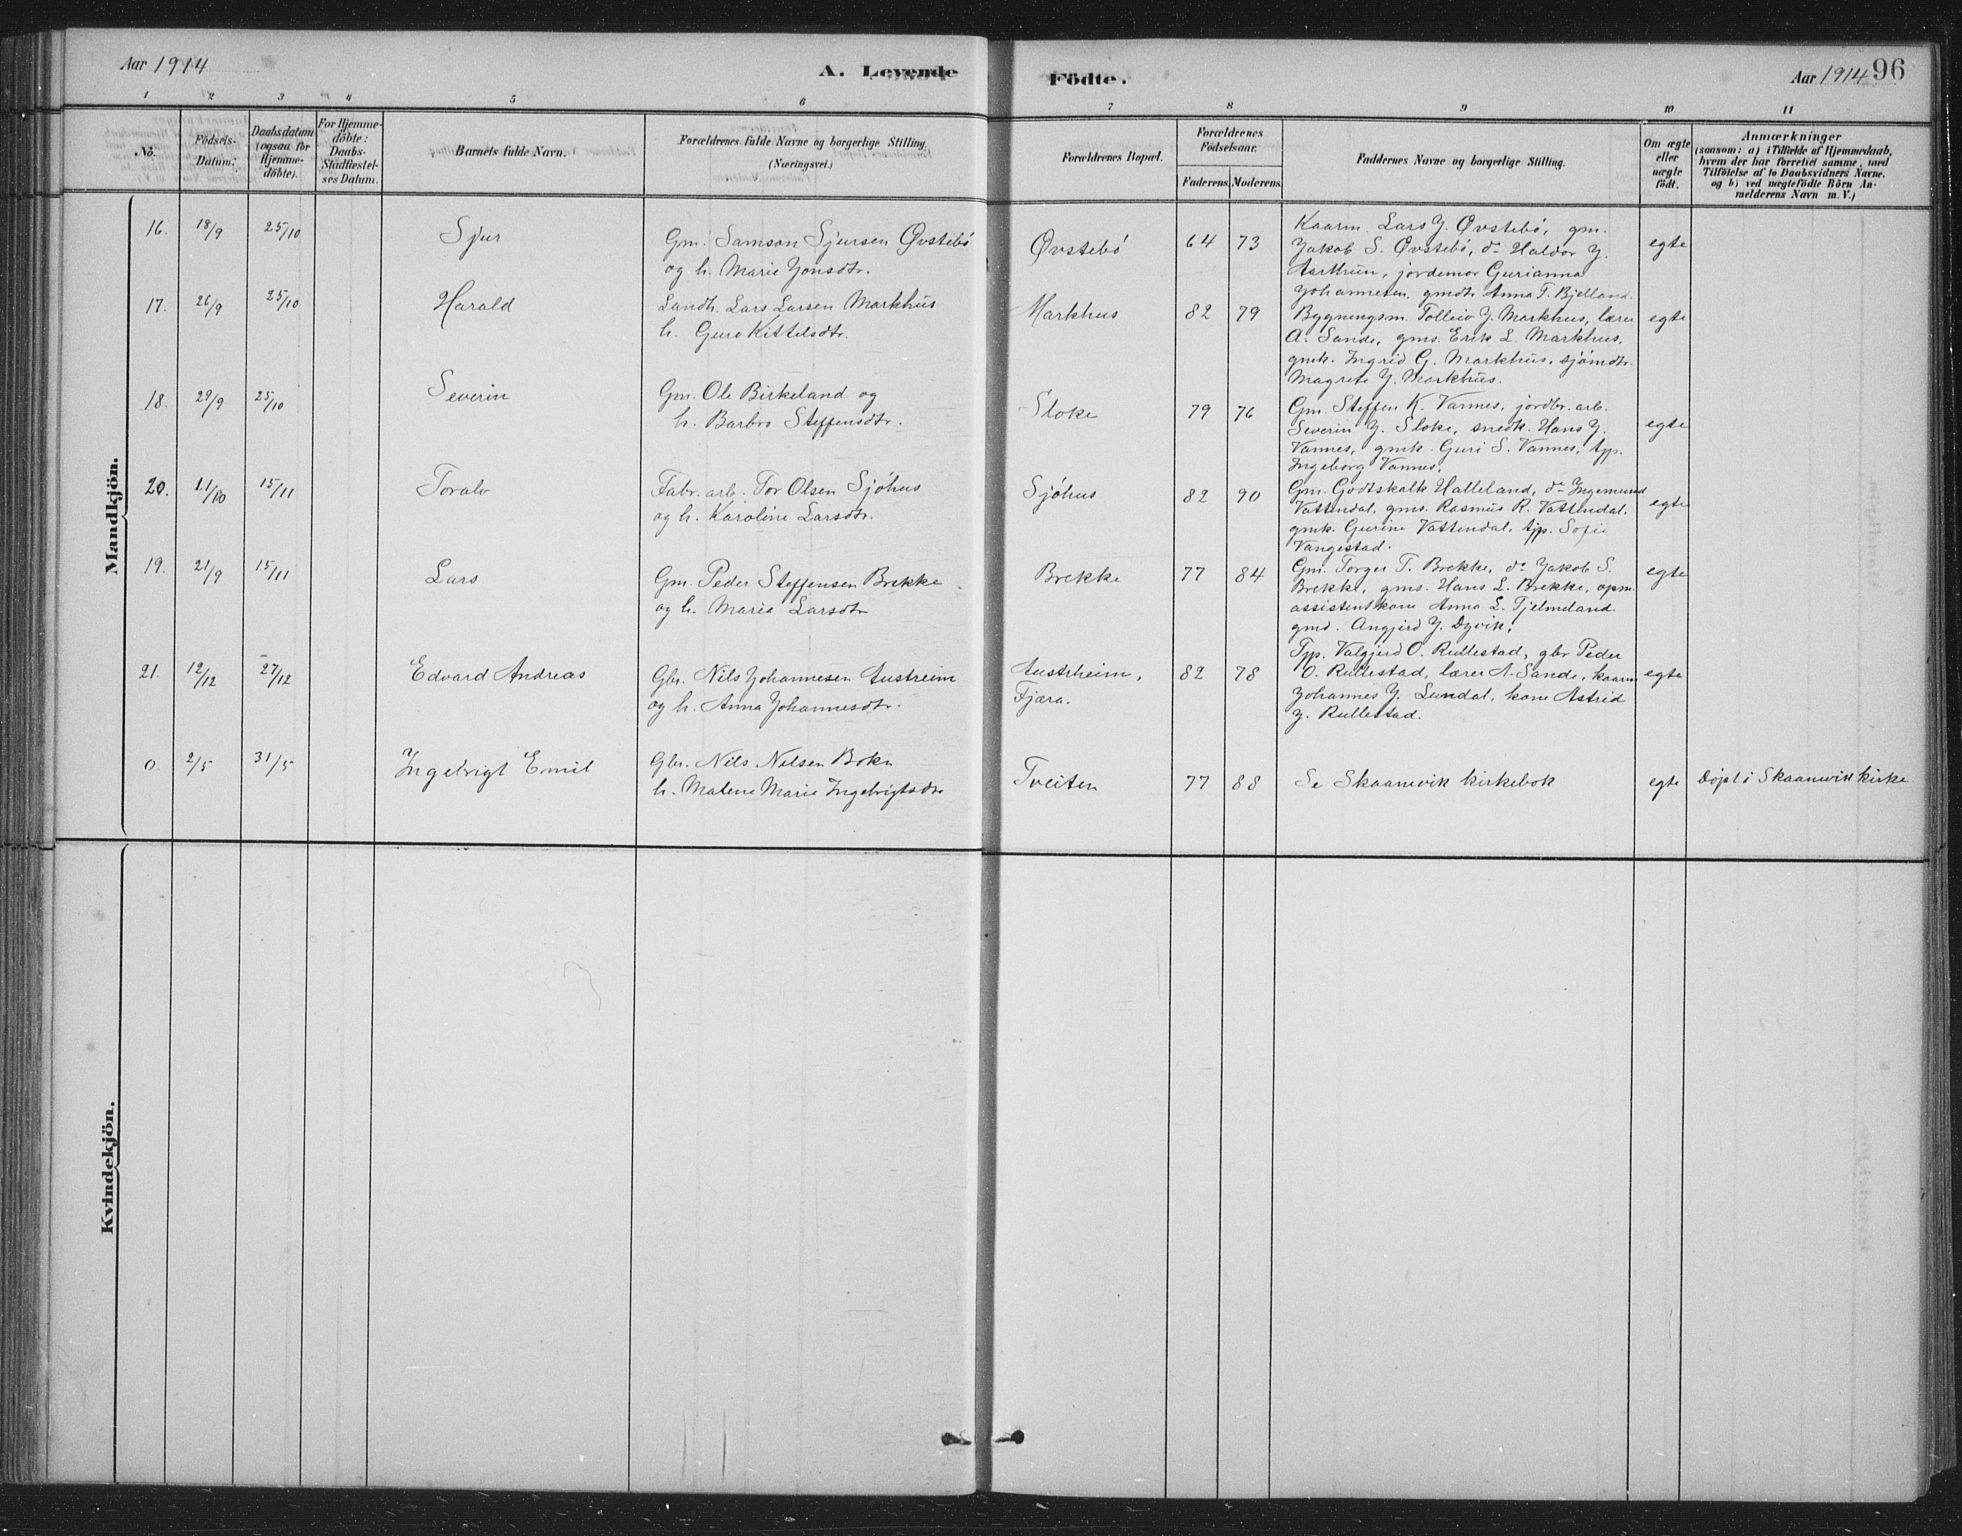 Aar 1914
A. Levende
Födte.
Aar 1914
96
1 2 3 4 5 6 7 8 9 10 11
No.
Födsels-
Datum.
Daabsdatum
(ogsaa for
Hjemme-
döbte).
For Hjemme-
döbte:
Daabs-
Stadfæstel-
ses Datum.
Barnets fulde Navn.
Forældrenes fulde Navne og borgerlige Stilling
(Næringsvei.)
Forældrenes Bopæl.
Forældrenes
Födselsaar.
Faderens Moderens
Faddernes Navne og borgerlige Stilling.
Om ægte
eller
uægte
födt.
Anmærkninger
(saasom: a) i Tilfælde af Hjemmedaab,
hvem der har forrettet samme, med
Tilföielse af to Daabsvidners Navne.
og b) ved uægtefödte Börn An-
melderens Navn m. V.)
Mandkjön.
16. 18/9 25/10 Sjur
Gm. Samson Sjursen Øvstebö
og h. Marie Jonsdtr.
Øvstebö 64 73
Kaarm. Lars J. Øvstebö, gm.
Jakob S. Øvstebö, do Haldor J.
Aarthun, jordemor Gurianna
Johannesen, gmdtr. Anna T. Bjelland.
egte
17. 26/9 25/10 Harald
Landh. Lars Larsen Markhus
h. Guro Kittelsdtr.
Markhus 82 79
Bygningsm. Tolleiv J. Markhus, lærer
A. Sande, gms. Erik L. Markhus,
gmk. Ingrid G. Markhus, sjömdtr.
Magrete J. Markhus.
egte
18. 29/9 25/10 Severin
Gm. Ole Birkeland og
h. Barbro Steffensdtr.
Sloke 79 76
Gm. Steffen K. Vannes, jordbr. arb.
Severin J. Sloke, snedk. Hans J.
Vannes, gmk. Guri S. Vannes, typ.
Ingeborg Vannes.
egte
20. 11/10 15/11 Toralv
Fabr. arb. Tor Olsen Sjöhus
og h. Karoline Larsdtr.
Sjöhus 82 90
Gm. Godtskalk Halleland, do Ingemund
Vattendal, gms. Rasmus R. Vattendal,
gmk. Gurine Vattendal, typ. Sofie
Vangestad.
egte
19. 21/9 15/11 Lars
Gm. Peder Steffensen Brekke
og h. Marie Larsdtr
Brekke 77 84
Gm. Torger T. Brekke, do Jakob S.
Brekke, gms. Hans L. Brekke, opm.
assistentkone Anna L. Tjelmeland
gmd. Angjerd J. Dyvik.
egte
21. 12/12 27/12 Edvard Andreas
Gbr. Nils Johannesen Austreim
og h. Anna Johannesdtr.
Austrheim,
Fjæra.
82 78
Typ. Valgjerd O. Rullestad, gbr Peder
O. Rullestad, lærer A. Sande, kaarm
Johannes J. Lundal, kone Astrid
J. Rullestad.
egte
0. 2/5 31/5 Ingebrigt Emil
Gbr. Nils Nelsen Bokn
h. Malene Marie Ingebrigtsdtr
Tveiten 77 88
Se Skaanevik kirkebok
egte Döpt i Skaanevik kirke
Kvindekjön.